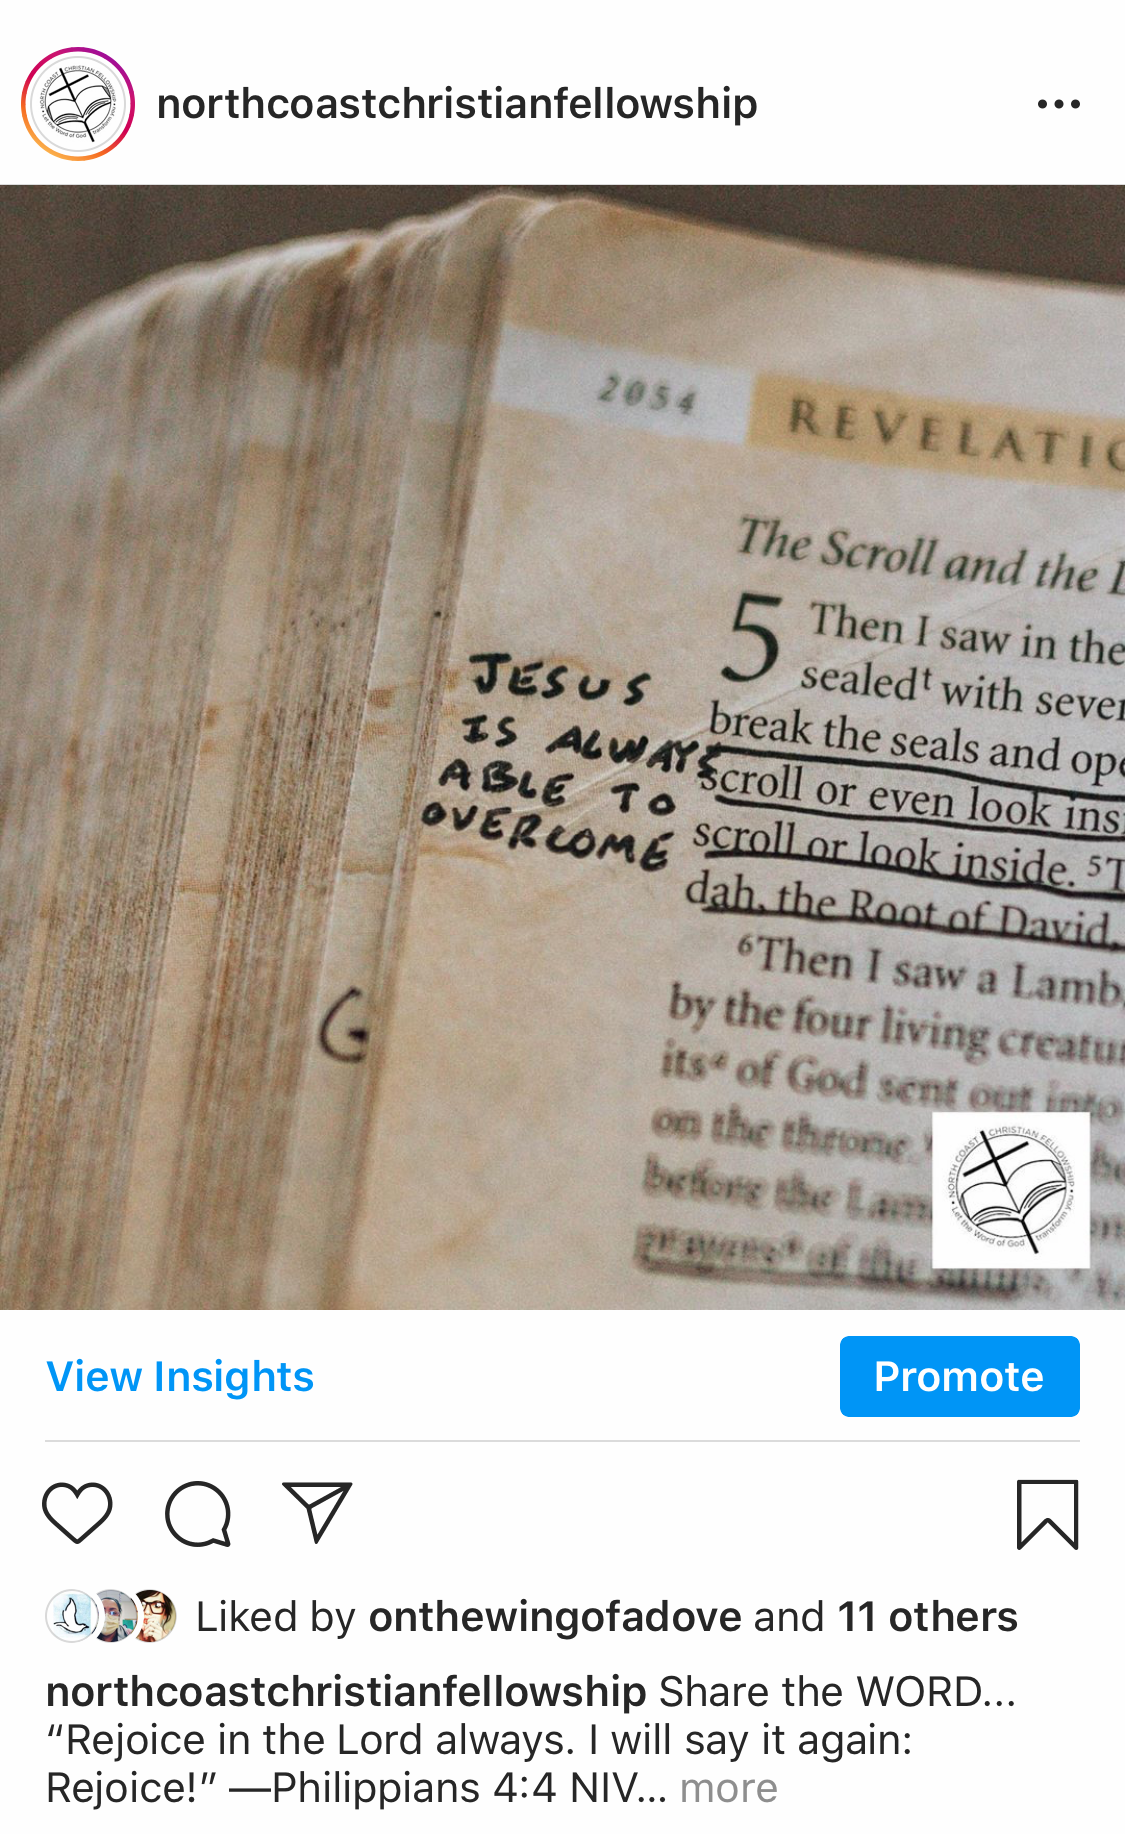 northcoastchristianfellowship
2054
REVELATIO
The Scroll and the L
5 Then I saw in the
sealedᵗ with seven
break the seals and ope
scroll or even look insi
scroll or look inside. ⁵T
dah, the Root of David,
⁶Then I saw a Lamb,
by the four living creatu
itsᵃ of God sent out into
on the throne.
before the Lam
prayers of the
JESUS
IS ALWAYS
ABLE TO
OVERCOME
G
NORTH COAST CHRISTIAN FELLOWSHIP
Let the Word of God transform you
View Insights
Promote
Liked by onthewingofadove and 11 others
northcoastchristianfellowship Share the WORD...
“Rejoice in the Lord always. I will say it again:
Rejoice!” —Philippians 4:4 NIV... more